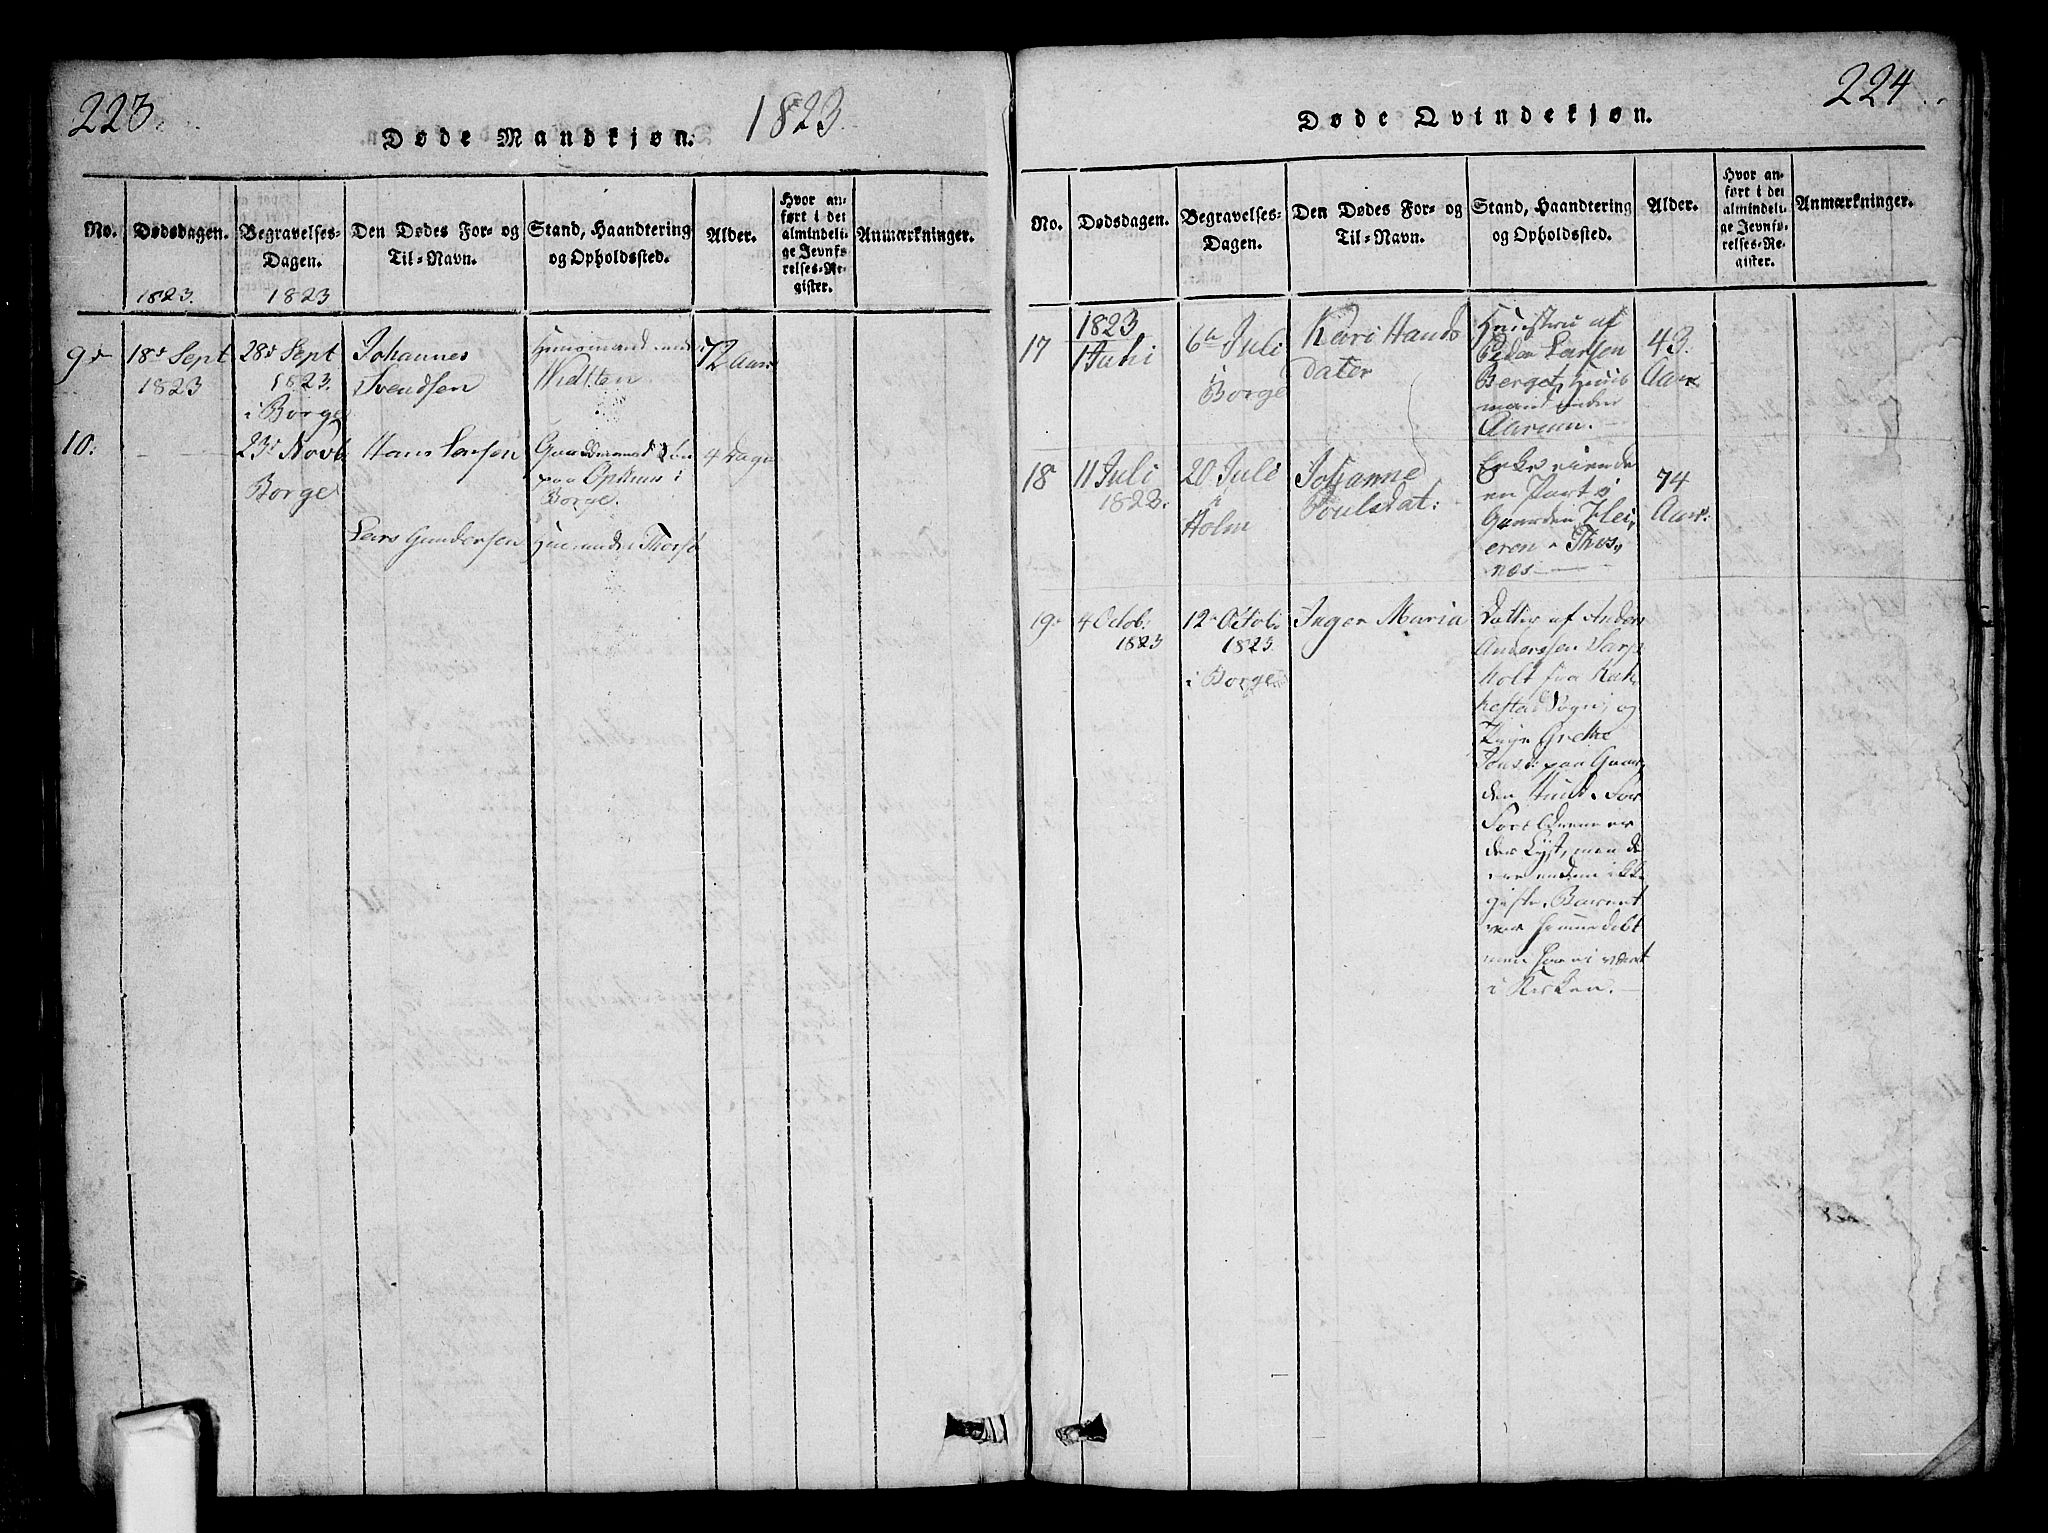 223.
Døde Mandkjøn.
1823.
No.
Dødsdagen.
1823.
Begravelses-
Dagen.
1823
Den Dødes For- og
Til-Navn.
Stand, Haandtering
og Opholdssted.
Alder.
Hvor an-
ført i det
almindeli-
ge Jevnfø-
relses-Re-
gister.
Anmærkninger.
9
18 Sept
1823
28 Sept
1823.
i Borge
Johannes
Svendsen
Huusmand under
72 Aar
10.
23 Novb
Borge
Hans Larsen
Gaardmand Søn
paa i
Borge.
4 Dage
Lars Gundersen
under Thorsø
224
Døde Qvindekjøn.
No.
Dødsdagen.
Begravelses-
Dagen.
Den Dødes For- og
Til-Navn.
Stand, Haandtering
og Opholdssted.
Alder.
Hvor an-
ført i det
almindeli-
ge Jevnfø-
relses-Re-
gister.
Anmærkninger.
17
1823
1 Juli
6 Juli
i
Borge
Kari Hans
dater
Huustru af
Peder Larsen
Berget, Huus
mand under
Aarum.
43.
Aar
18
11 Juli
1823.
20 Juli
i
Holm
Johanne
Poulsdat:
Enke eiende
en Part i
Gaarden
eren i Thos,
næs
74
Aar:
19
4 Octob:
1823
12 Octob:
1823.
i Borge
Inger Maria
Datter af Anders
Anderssen Sarps
holt fra Rak,
kestad Sogn, og
Pige Grethe
Jonsd: paa Gaar,
den Hund. For
Forældrene er
der Lyst, men de
ere endnu ikke
gifte. Barnet
var hiemmedøbt
men har ei været
i Kirken.